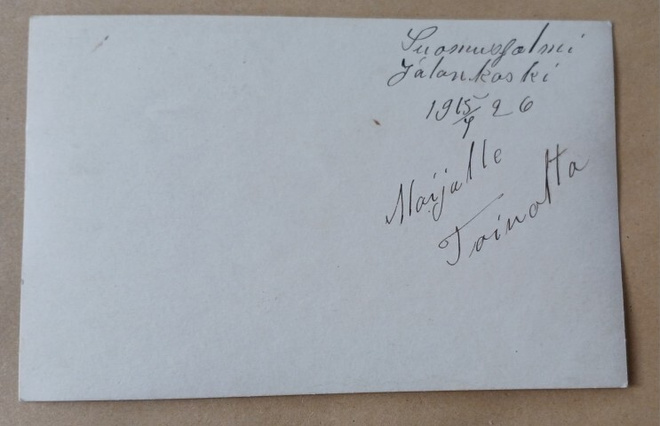 Suomussalmi
Jalonkoski
19 15/7 26
Maijalle
Toinolta